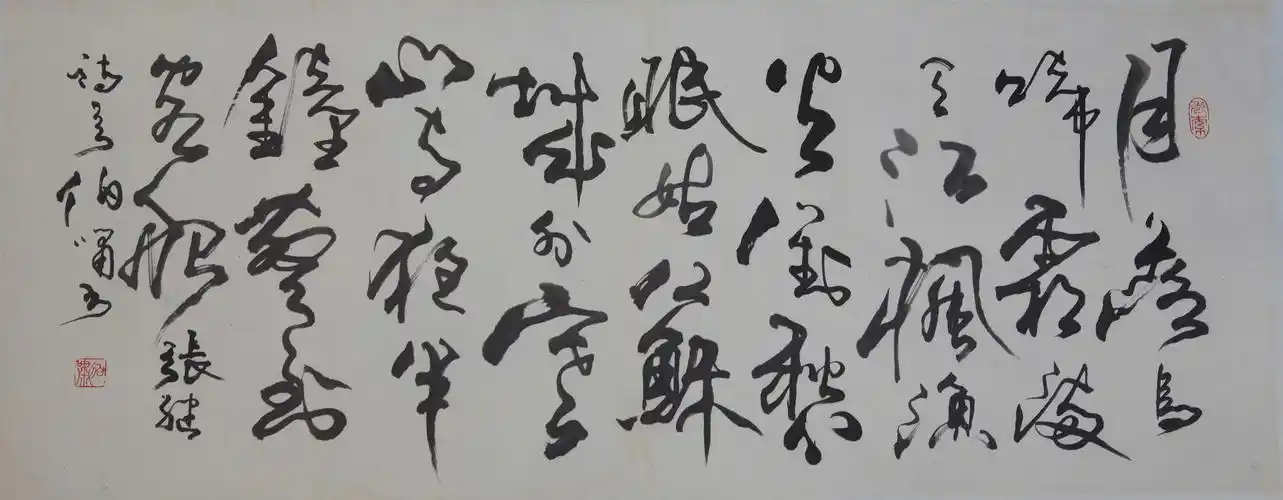 月落烏
啼霜滿
天江楓漁
火對愁
眠姑蘇
城外寒
山寺夜半
鐘聲到
客船張繼
詩伯嘯書